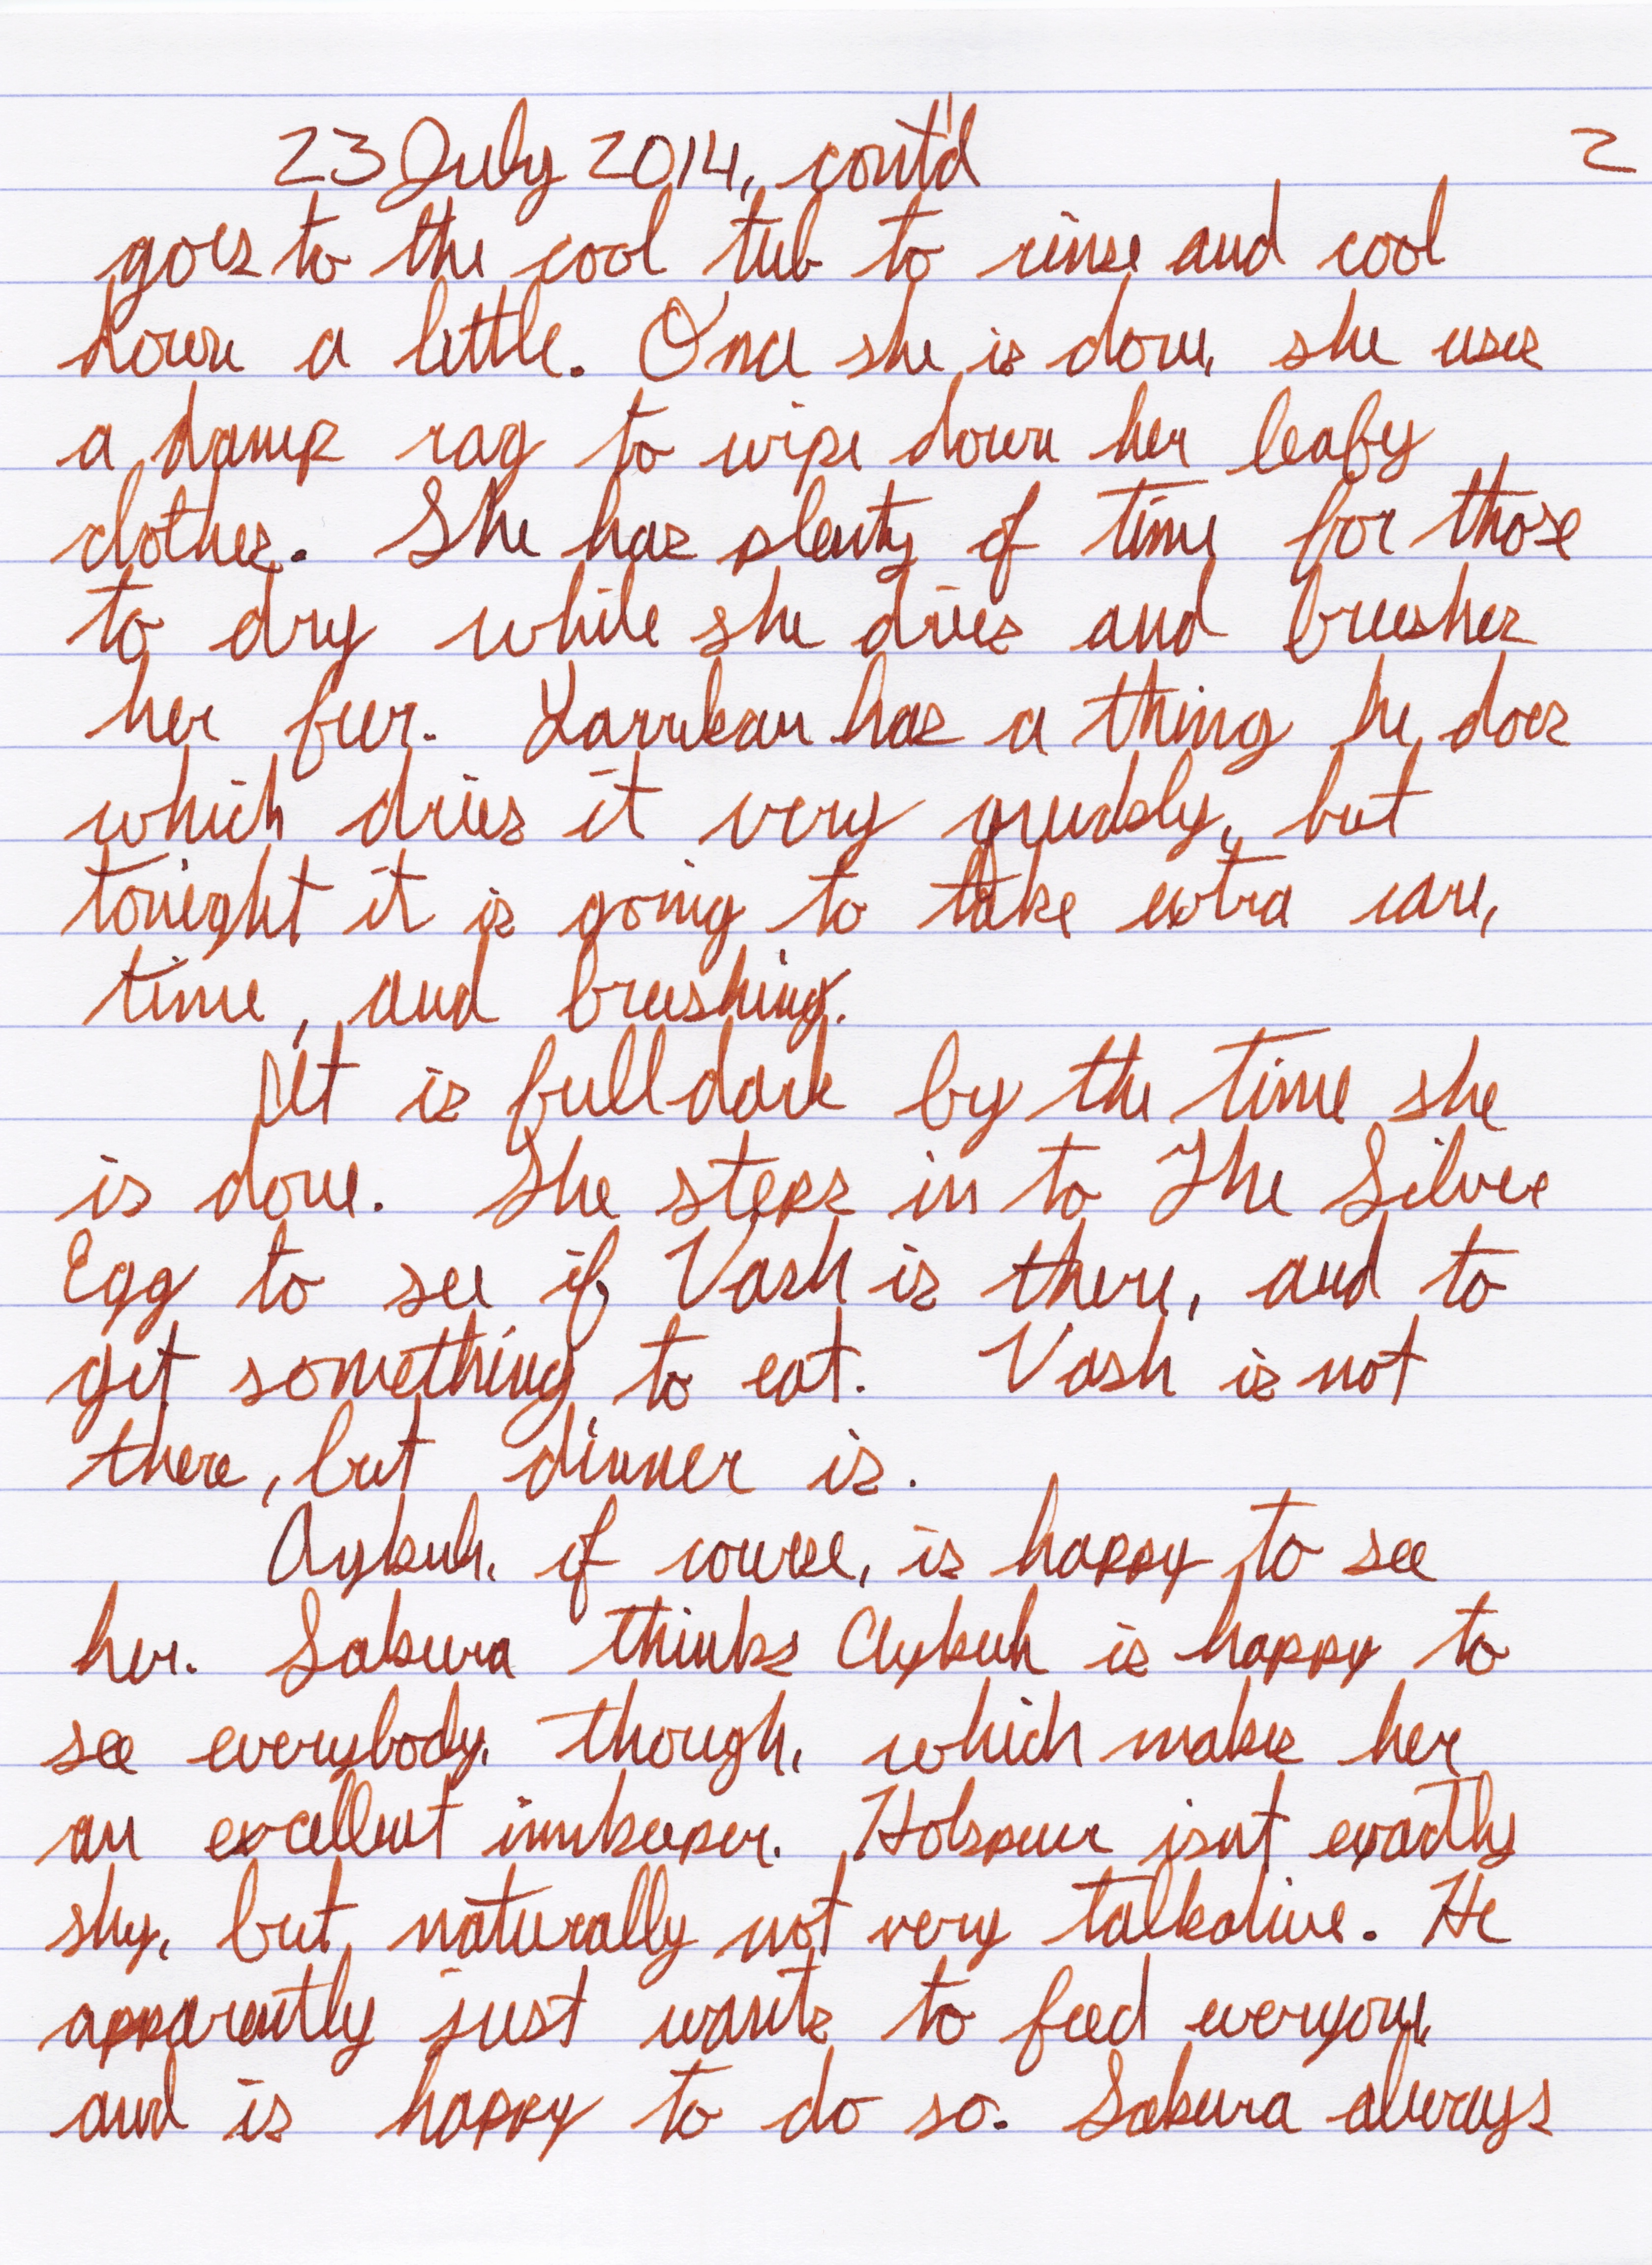 23 July 2014, cont'd 2
goes to the cool tub to rinse and cool
down a little. Once she is done, she uses
a damp rag to wipe down her leafy
clothes. She has plenty of time for those
to dry while she dries and brushes
her fur. Yarrikan has a thing he does
which dries it very quickly, but
tonight it is going to take extra care,
time, and brushing.
It is full dark by the time she
is done. She steps in to The Silver
Egg to see if Vash is there, and to
get something to eat. Vash is not
there, but dinner is.
Aykuh, of course, is happy to see
her. Sakura thinks Aykuh is happy to
see everybody, though, which makes her
an excellent innkeeper. Hobspur isn't exactly
shy, but naturally not very talkative. He
apparently just wants to feed everyone,
and is happy to do so. Sakura always